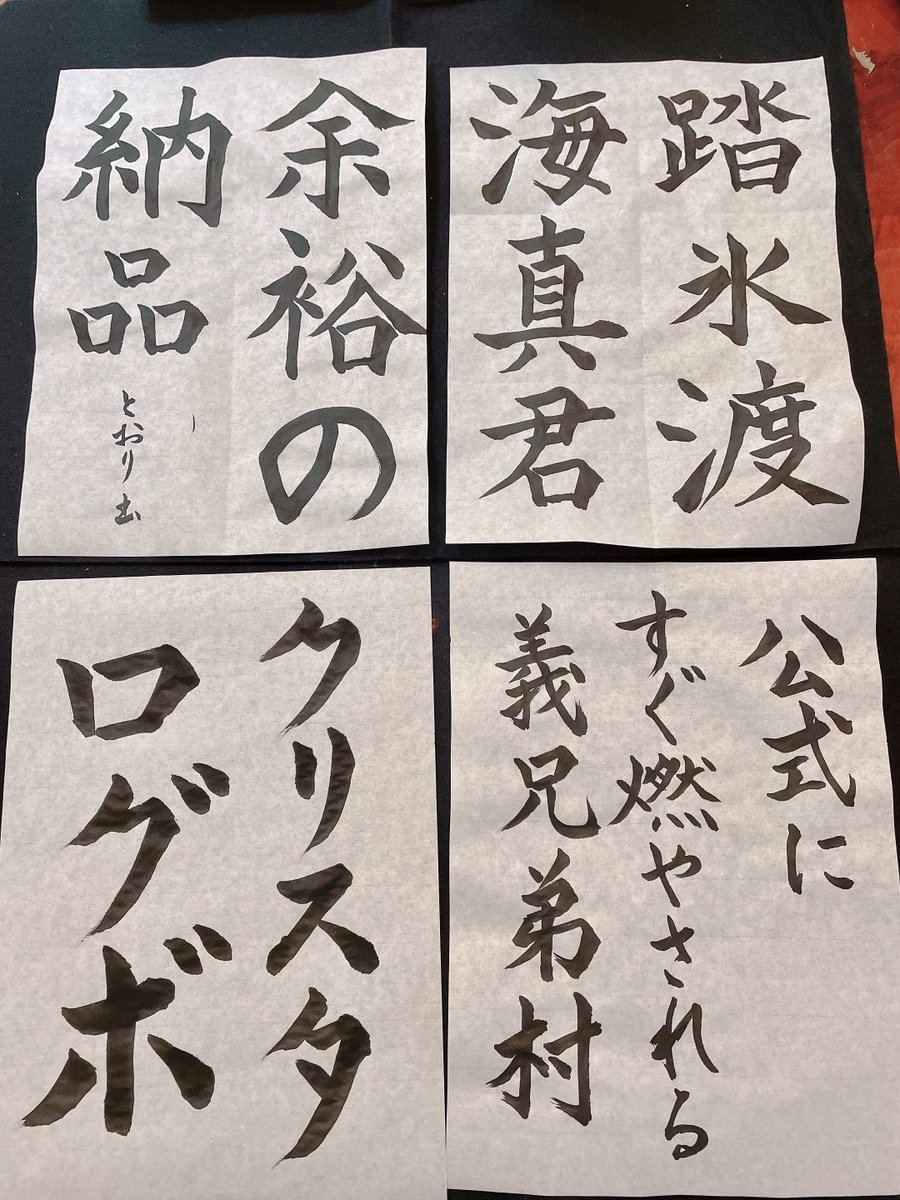 踏氷渡
海真君
余裕の
納品
とおり
公式に
すぐ燃やされる
義兄弟村
クリスタ
ログボ